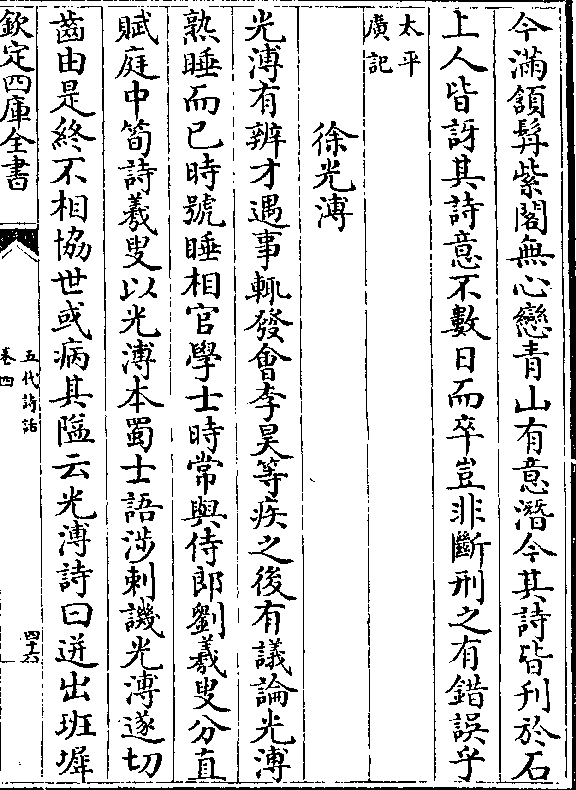 今滿頷髯紫閣無心戀青山有意潛今其詩皆刋於石
上人皆訝其詩意不數日而卒豈非斷刑之有錯誤乎
太平
廣記
徐光溥
光溥有辨才遇事輒發會李昊等疾之後有議論光溥
熟睡而已時號睡相官學士時常與侍郎劉羲叟分直
賦庭中筍詩羲叟以光溥本蜀士語涉刺譏光溥遂切
齒由是終不相協世或病其隘云光溥詩曰迸出班犀
欽定四庫全書
五代詩話
卷四
四十六